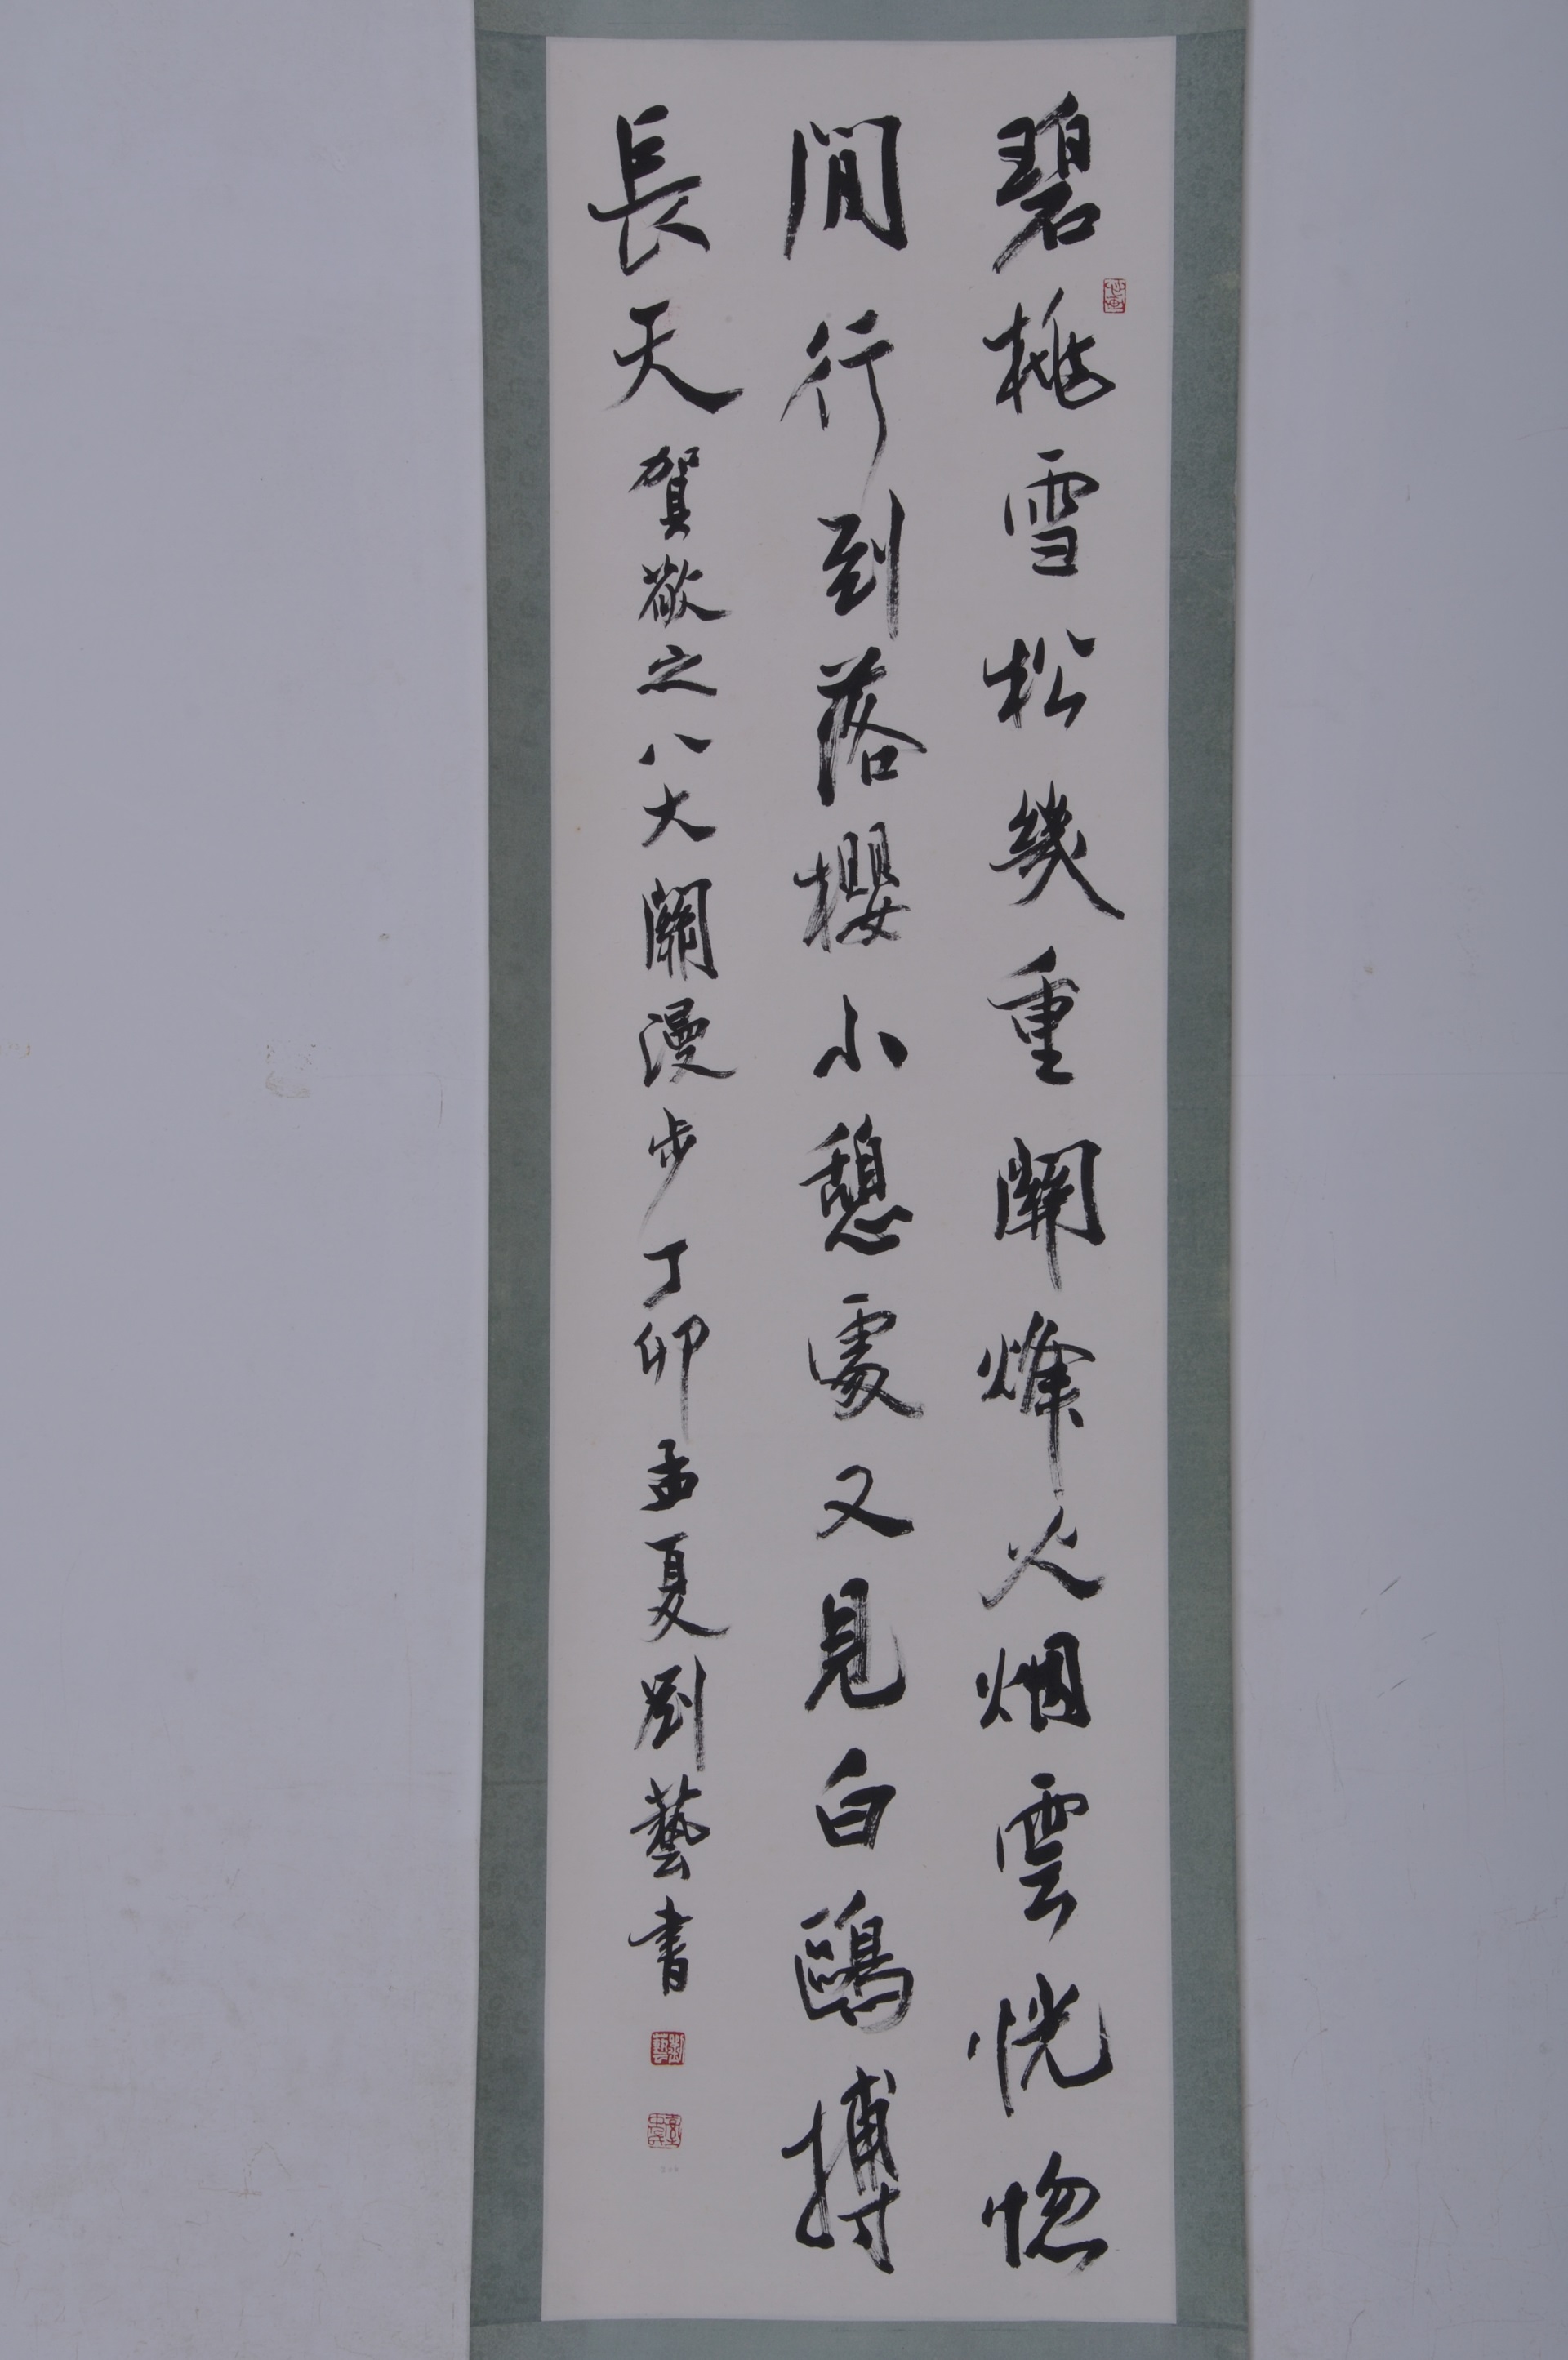 碧桃雪松幾重關烽火烟雲恍惚
間行到落櫻小憩處又見白鷗搏
長天賀敬之八大關漫步丁卯孟夏劉藝書
劉藝